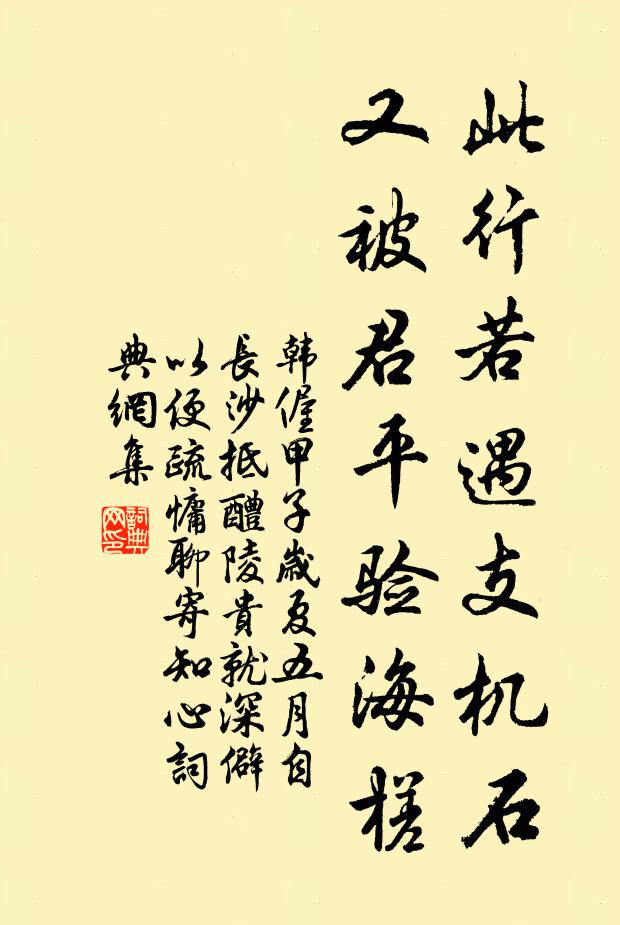 此行若遇支机石
又被君平验海槎
韩偓甲子歲夏五月自
長沙抵醴陵貴就深僻
以便疏慵聊寄知心詞
典網集
詞典
网印